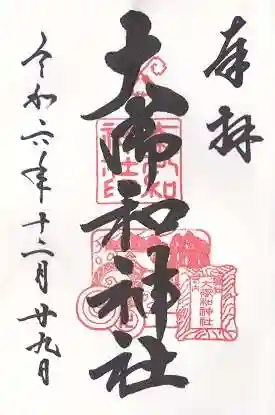 奉拝
大御和神社
大御和神社
令和六年十二月廿九日